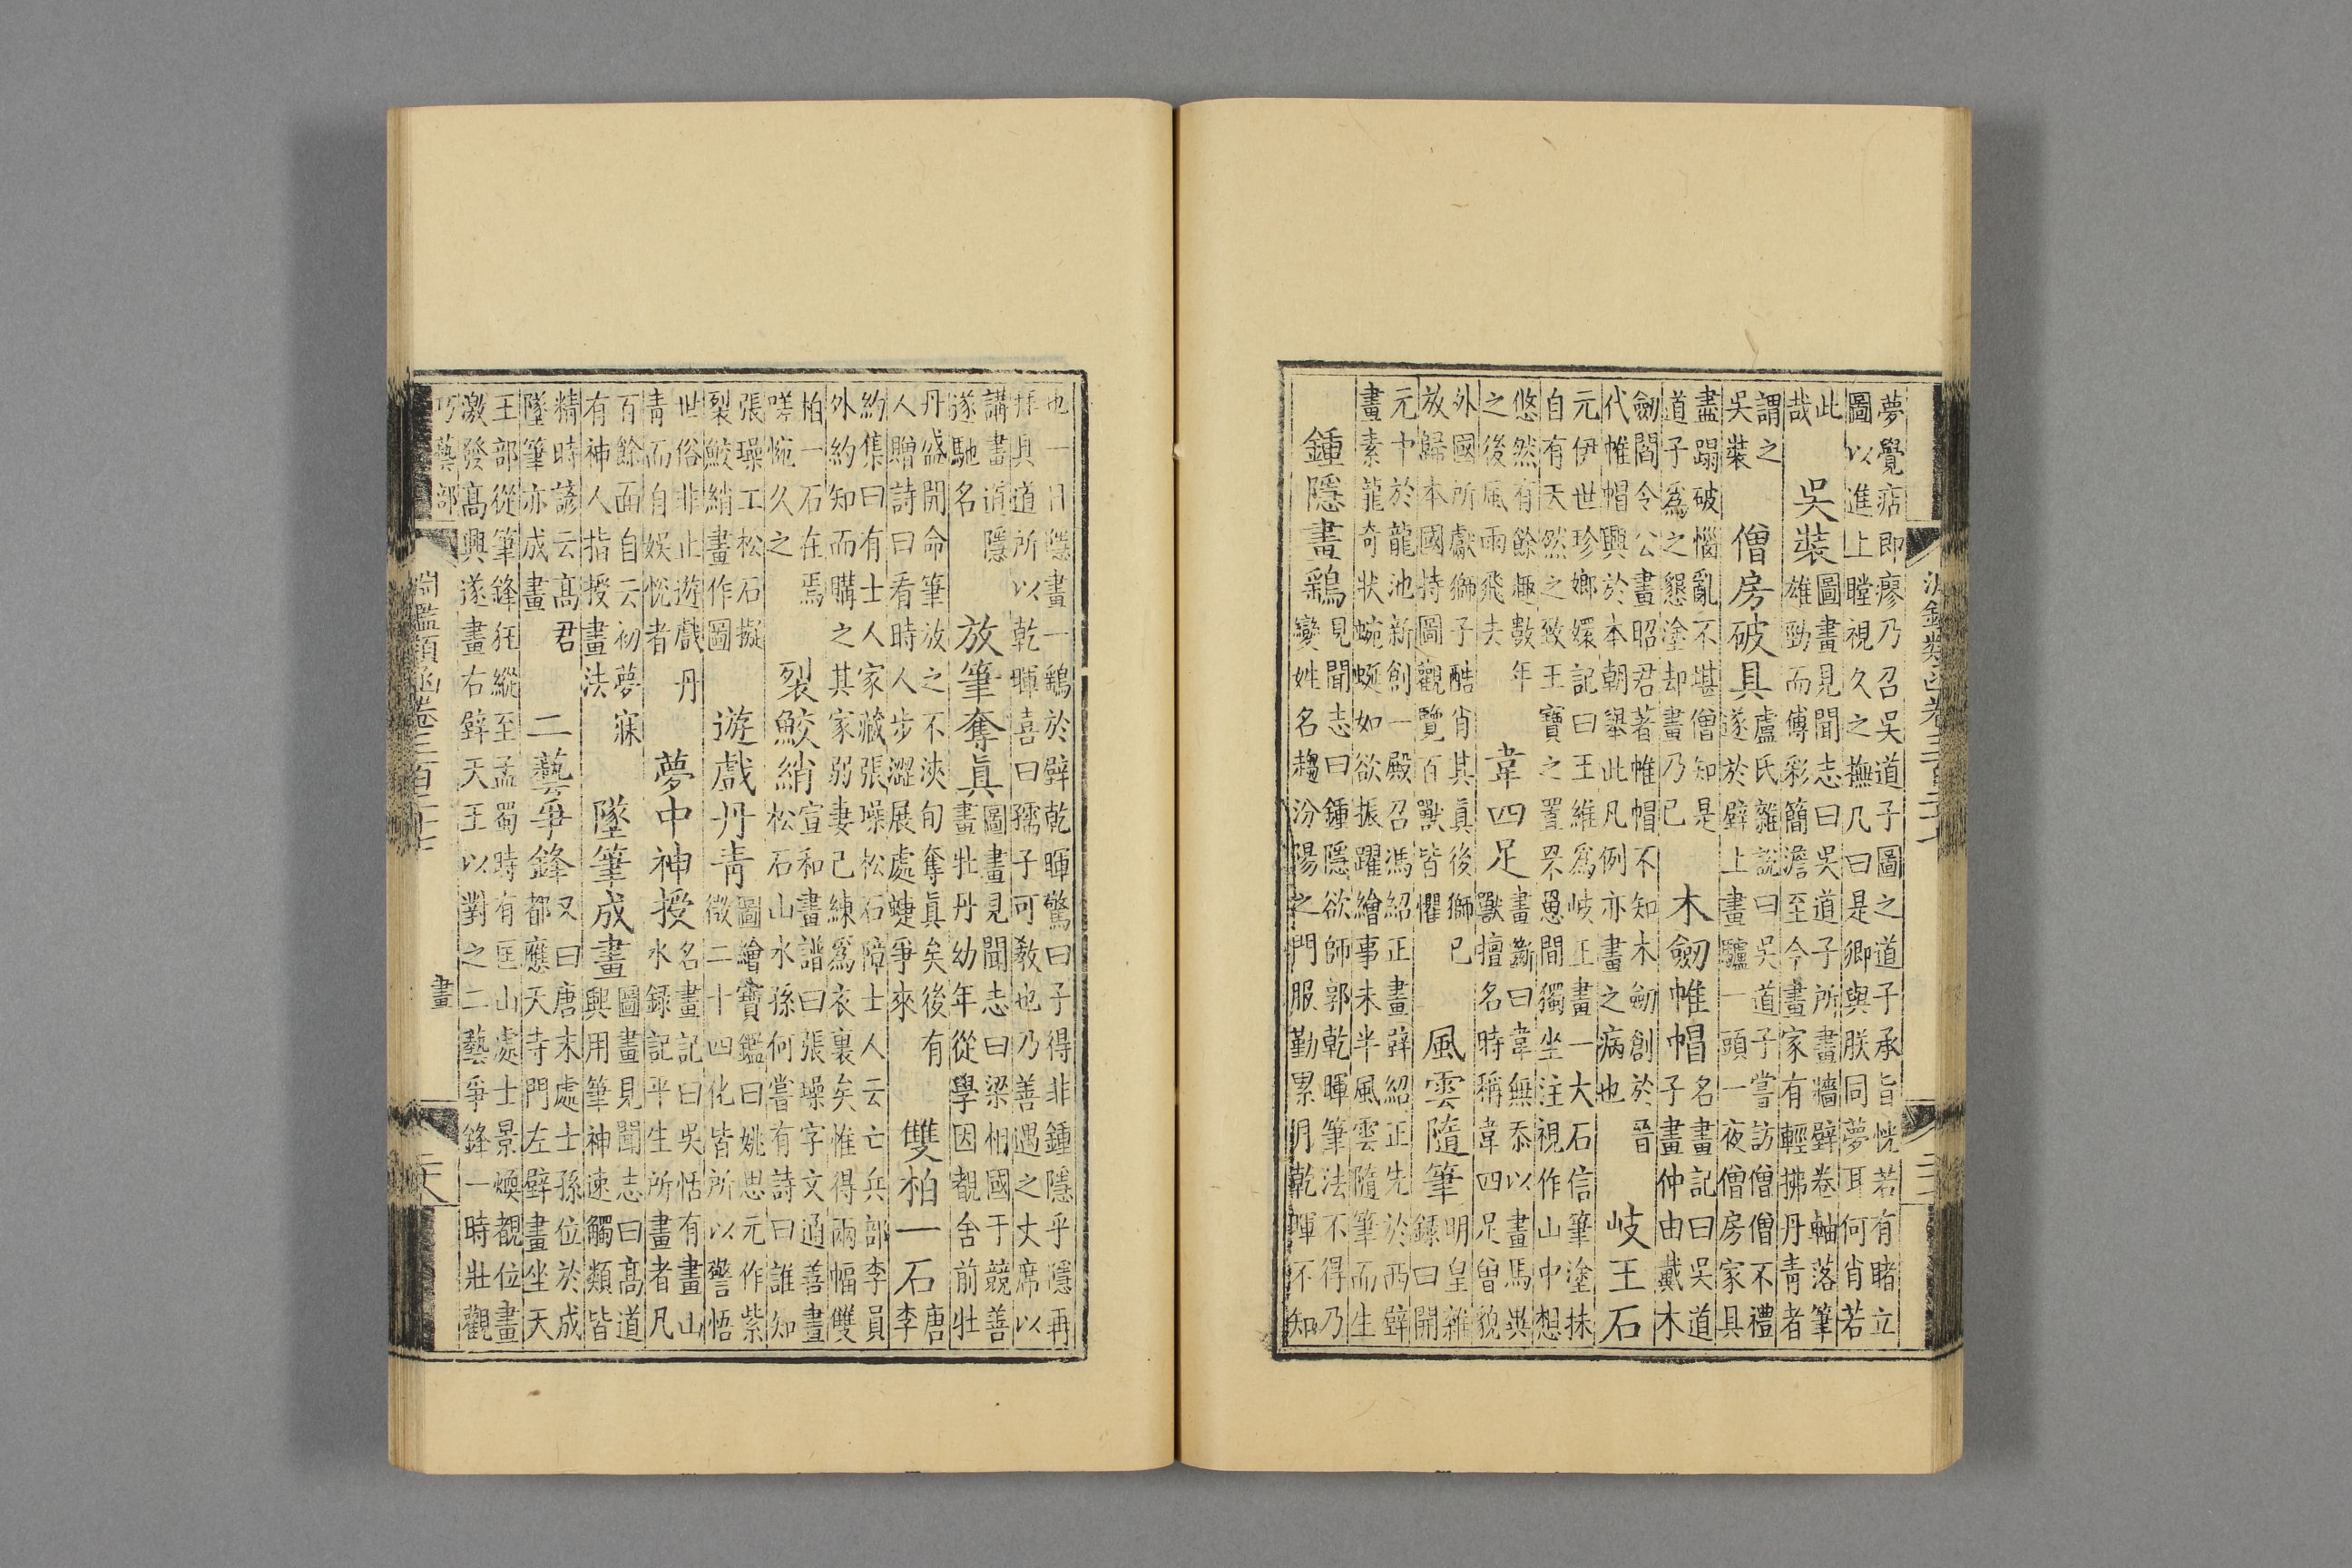 夢覺痁即瘳乃召吳道子圖之道子承旨恍若有睹立
圖以進上瞠視久之撫几曰是卿與朕同夢耳何肖若
此
哉
吳裝
圖畫見聞志曰吳道子所畫牆壁卷軸落筆
雄勁而傅彩簡澹至今畫家有輕拂丹青者
謂之
吳裝
僧房破具
盧氏雜說曰吳道子嘗訪僧僧不禮
遂於壁上畫驢一頭一夜僧房家具
盡蹋破惱亂不堪僧知是
道子爲之懇塗却畫乃已
木劒帷帽
名畫記曰吳道
子畫仲由戴木
劒閻令公畫昭君著帷帽不知木劒創於晉
代帷帽興於本朝舉此凡例亦畫之病也
岐王石
元伊世珍嫏嬛記曰王維爲岐王畫一大石信筆塗抹
自有天然之致王寶之置罘罳間獨坐注視作山中想
悠然有餘趣數年
之後風雨飛去
韋四足
畫斷曰韋無忝以畫馬與
獸擅名時稱韋四足曾貌
外國所獻獅子酷肖其眞後獅已
放歸本國持圖觀覽百獸皆懼
風雲隨筆
明皇雜
錄曰開
元中於龍池新創一殿召馮紹正畫壁紹正先於西壁
畫素龍奇狀蜿蜒如欲振躍繪事未半風雲隨筆而生
鍾隱畫鷂
見聞志曰鍾隱欲師郭乾暉筆法不得乃
變姓名趨汾陽之門服勤累月乾暉不知
也一日隱畫一鷂於壁乾暉驚曰子得非鍾隱乎隱再
拜具道所以乾暉喜曰孺子可敎也乃善遇之丈席以
講畫道隱
遂馳名
放筆奪眞
圖畫見聞志曰梁相國于兢善
畫牡丹幼年從學因覩舍前牡
丹盛開命筆放之不浹旬奪眞矣後有
人贈詩曰看時人步澀展處蜨爭來
雙柏一石
唐
李
約集曰有士人家藏張璪松石障士人云亡兵部李員
外約知而購之其家弱妻已練爲衣裏矣惟得兩幅雙
柏一石在焉
嗟惋久之
裂鮫綃
宣和畫譜曰張璪字文通善畫
松石山水孫何嘗有詩曰誰知
張璪工松石擬
裂鮫綃畫作圖
遊戲丹青
圖繪寶鑑曰姚思元作紫
微二十四化皆所以警悟
世俗非止遊戲丹
青而自娛悅者
夢中神授
名畫記曰吳恬有畫山
水錄記平生所畫者凡
百餘面自云初夢寐
有神人指授畫法
墜筆成畫
圖畫見聞志曰高道
興用筆神速觸類皆
精時諺云高君
墜筆亦成畫
二藝爭鋒
又曰唐末處士孫位於成
都應天寺門左壁畫坐天
王部從筆鋒狂縱至孟蜀時有匡山處士景煥覩位畫
激發高興遂畫右壁天王以對之二藝爭鋒一時壯觀
巧藝部
淵鑑類函卷三百二十七
畫